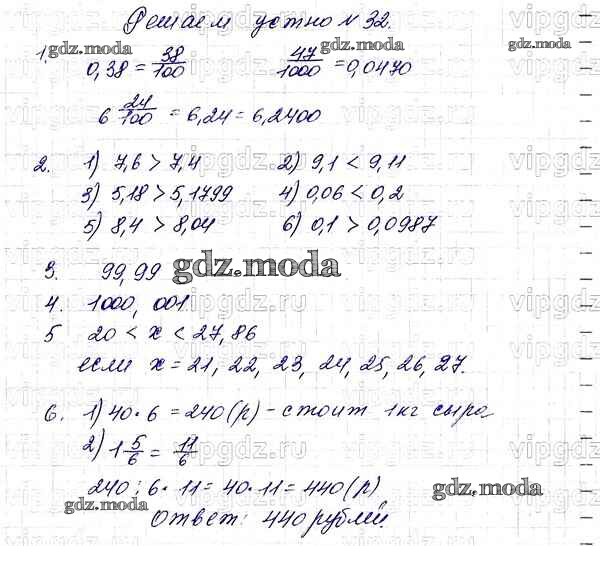 Решаем устно № 32.
1. 0,38 = 38/100 47/1000 = 0,0470
6 24/100 = 6,24 = 6,2400
2. 1) 7,6 > 7,4 2) 9,1 < 9,11
3) 5,18 > 5,1799 4) 0,06 < 0,2
5) 8,4 > 8,04 6) 0,1 > 0,0987
3. 99,99
4. 1000,001.
5 20 < x < 27,86
если x = 21, 22, 23, 24, 25, 26, 27.
6. 1) 40 · 6 = 240 (р) - стоит 1 кг сыра
2) 1 5/6 = 11/6
240 : 6 · 11 = 40 · 11 = 440 (р)
Ответ: 440 рублей.
gdz.moda
vipgdz.ru